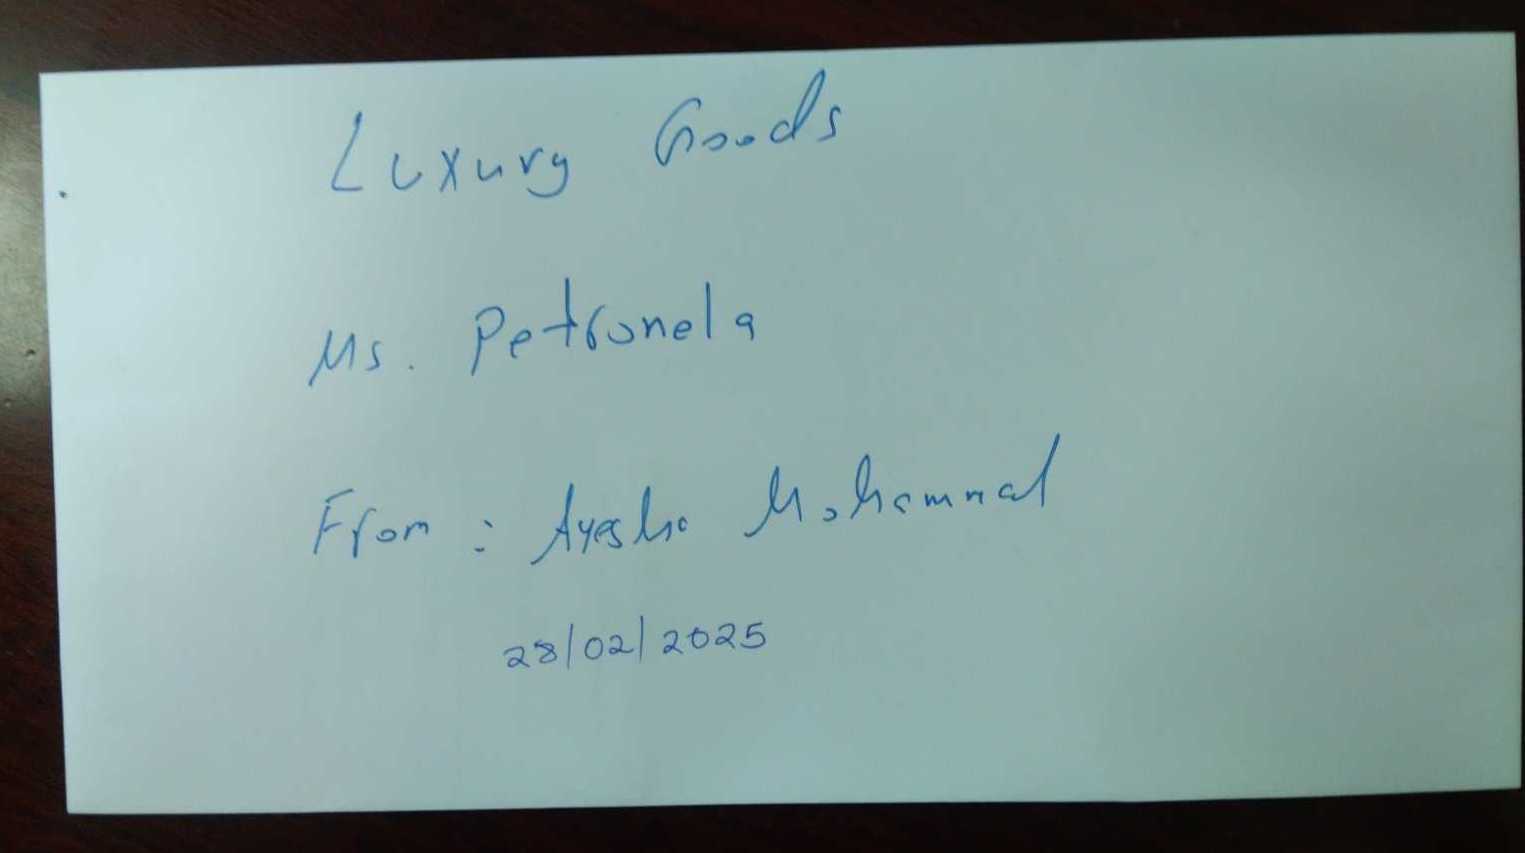 Luxury Goods
Ms. Petronela
From : Ayesha Mohammad
28/02/2025